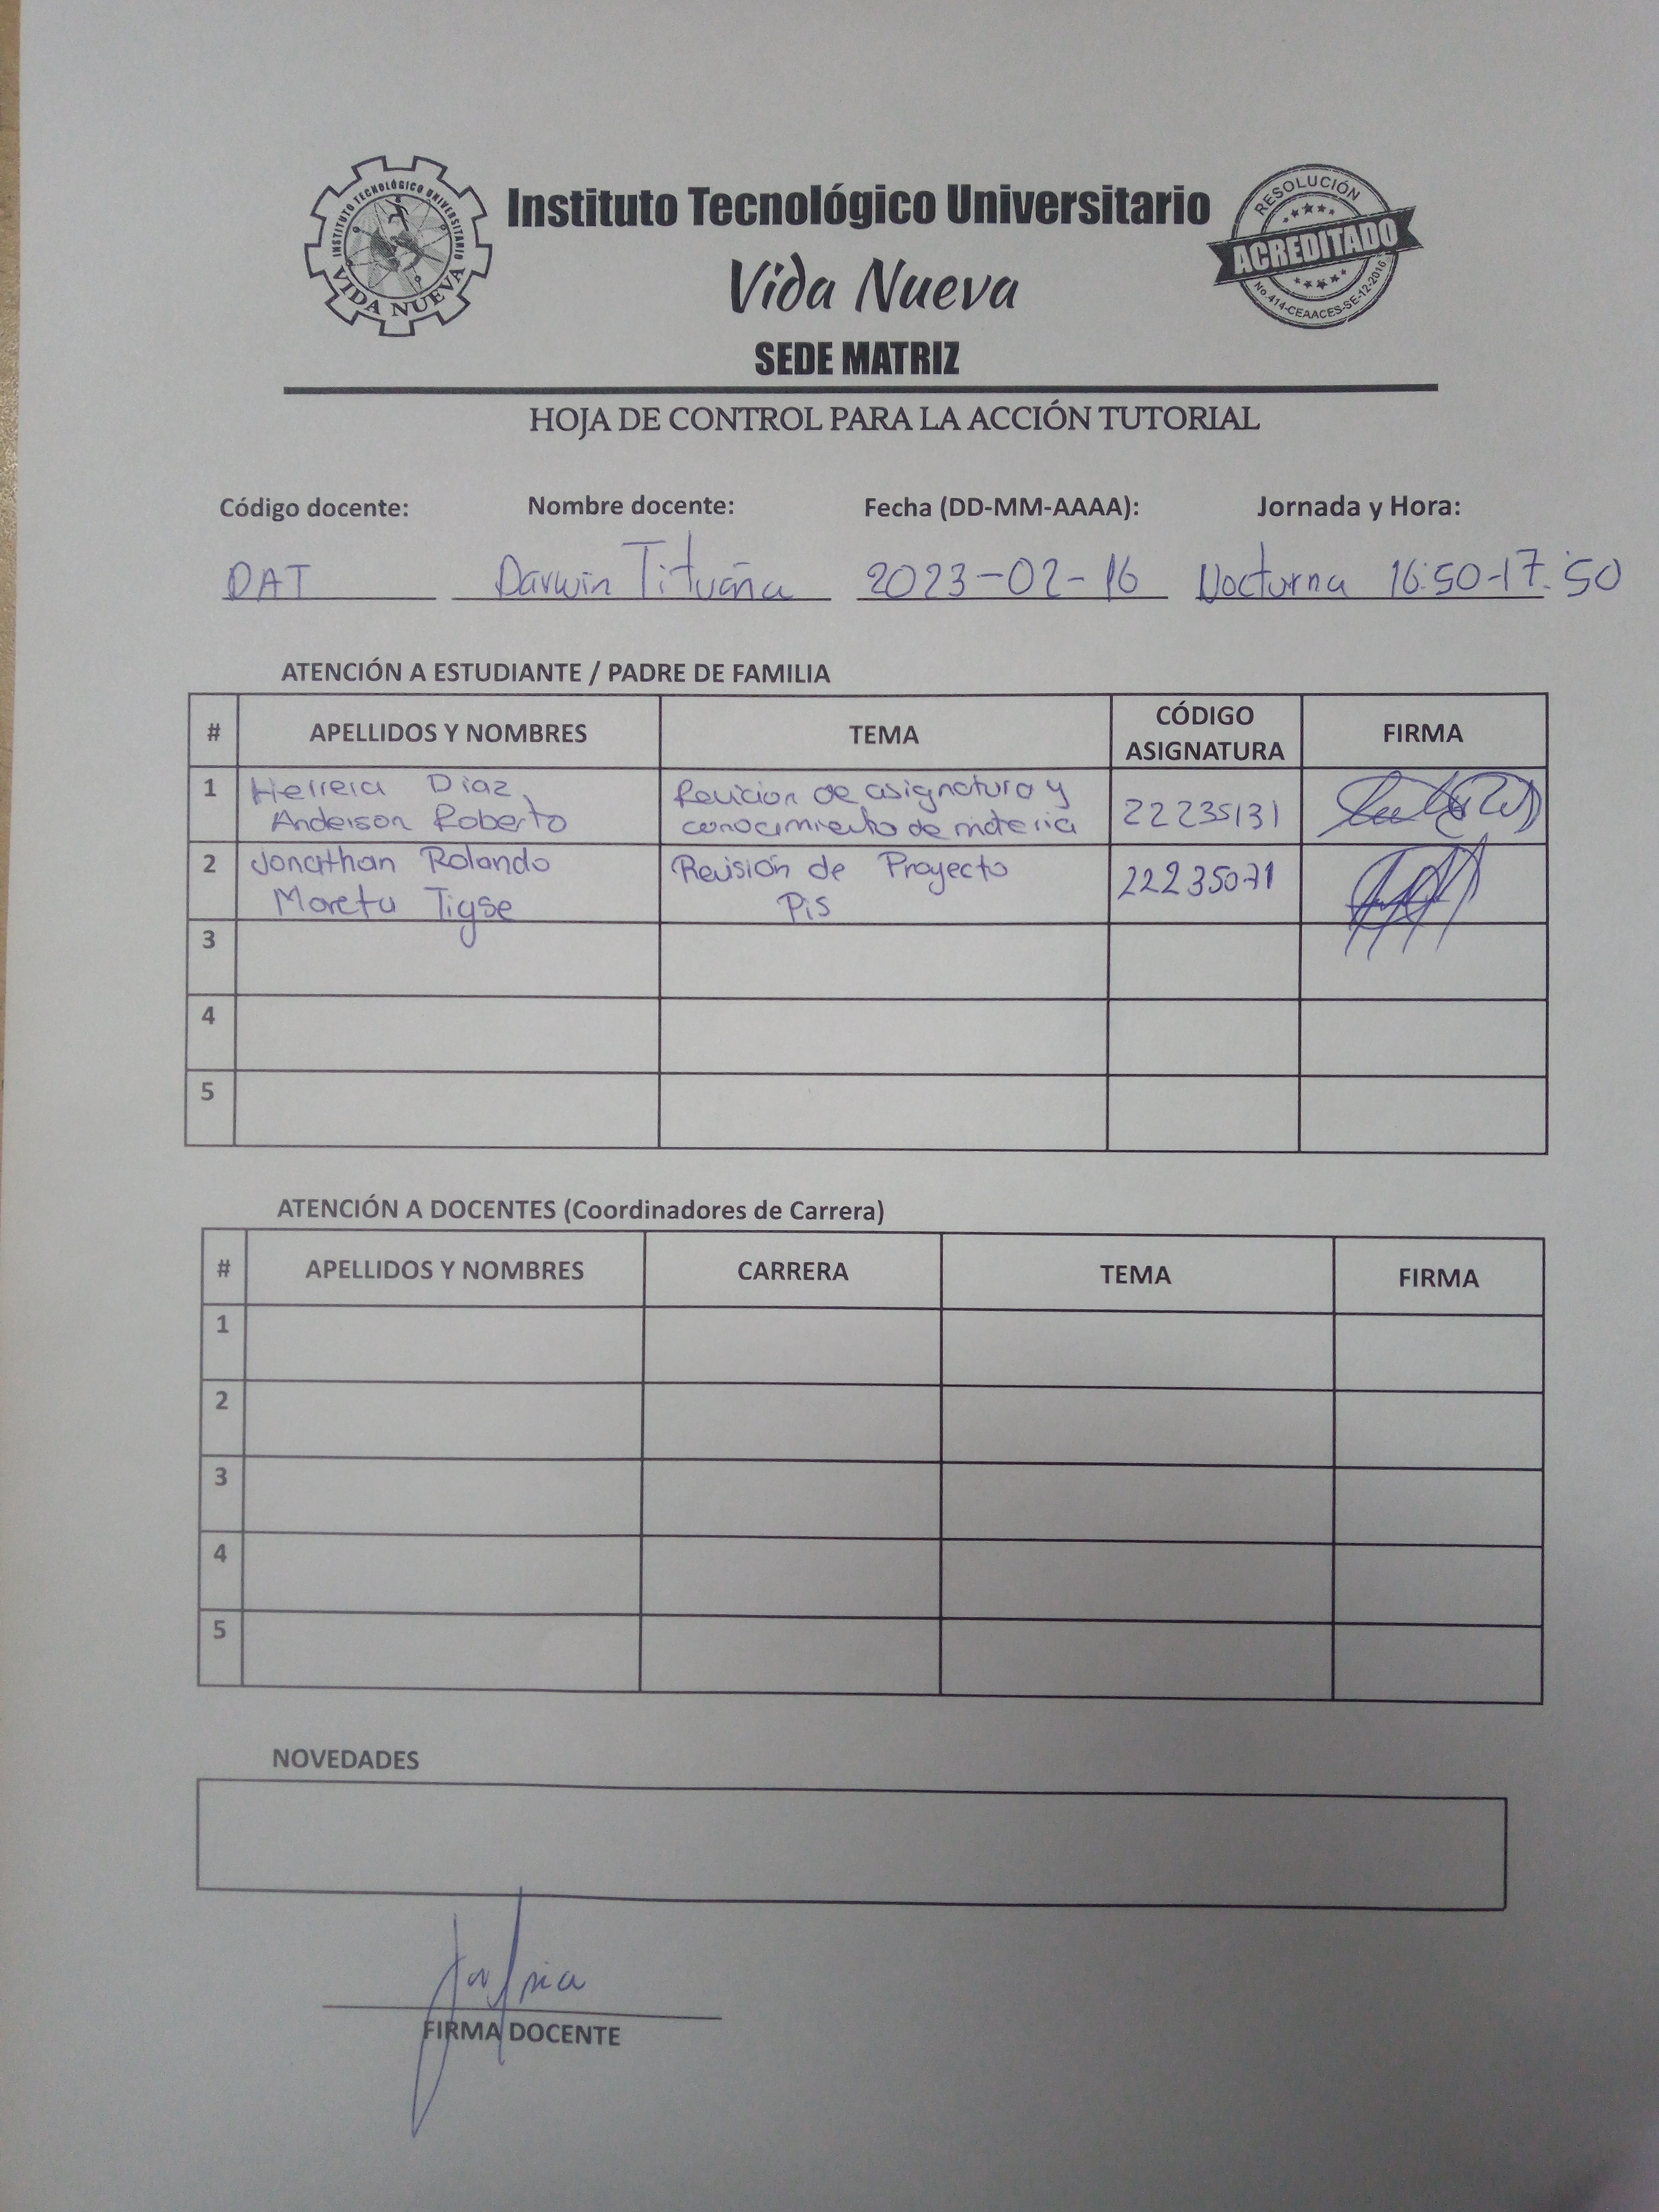 INSTITUTO TECNOLÓGICO UNIVERSITARIO
VIDA NUEVA
Instituto Tecnológico Universitario
Vida Nueva
SEDE MATRIZ
RESOLUCIÓN
ACREDITADO
No.414-CEAACES-SE-12-2016
HOJA DE CONTROL PARA LA ACCIÓN TUTORIAL
Código docente: Nombre docente: Fecha (DD-MM-AAAA): Jornada y Hora:
DAT Darwin Tituaña 2023-02-16 Nocturna 16:50-17:50
ATENCIÓN A ESTUDIANTE / PADRE DE FAMILIA
# APELLIDOS Y NOMBRES TEMA CÓDIGO ASIGNATURA FIRMA
1 Herrera Diaz Revicion de asignatura y 22235131
Anderson Roberto conocimiento de materia
2 Jonathan Rolando Revisión de Proyecto 22235071
Moreta Tigse Pis
3
4
5
ATENCIÓN A DOCENTES (Coordinadores de Carrera)
# APELLIDOS Y NOMBRES CARRERA TEMA FIRMA
1
2
3
4
5
NOVEDADES
FIRMA DOCENTE